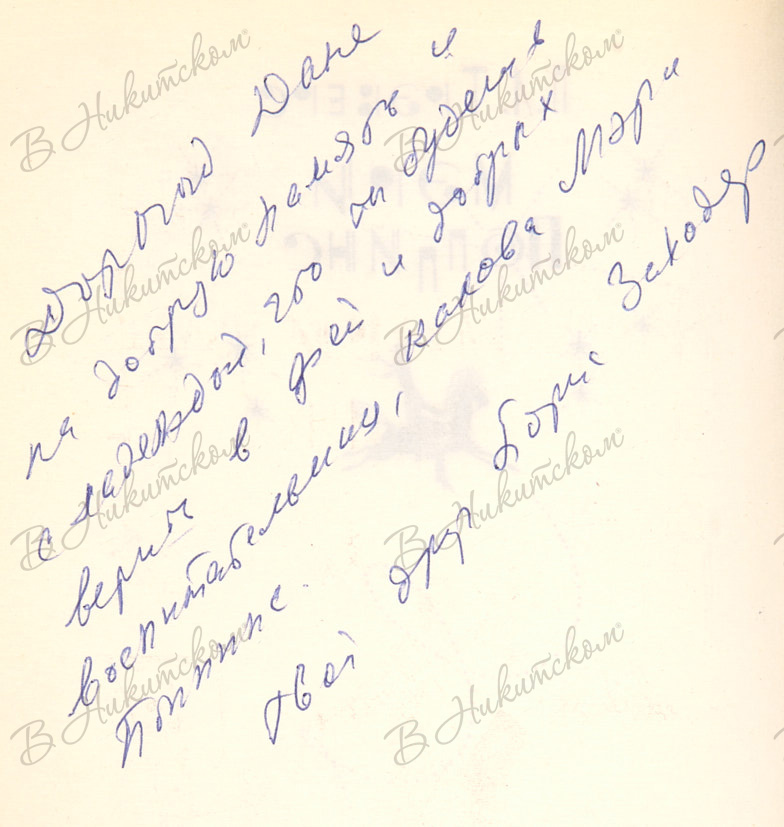 Дорогой Дане
на добрую память и
с надеждой, что ты будешь
верить в фей и добрых
воспитательниц, какова Мэри
Поппинс.
твой друг Борис Заходер
В Никитском
В Никитском
В Никитском
В Никитском
В Никитском
В Никитском
В Никитском
В Никитском